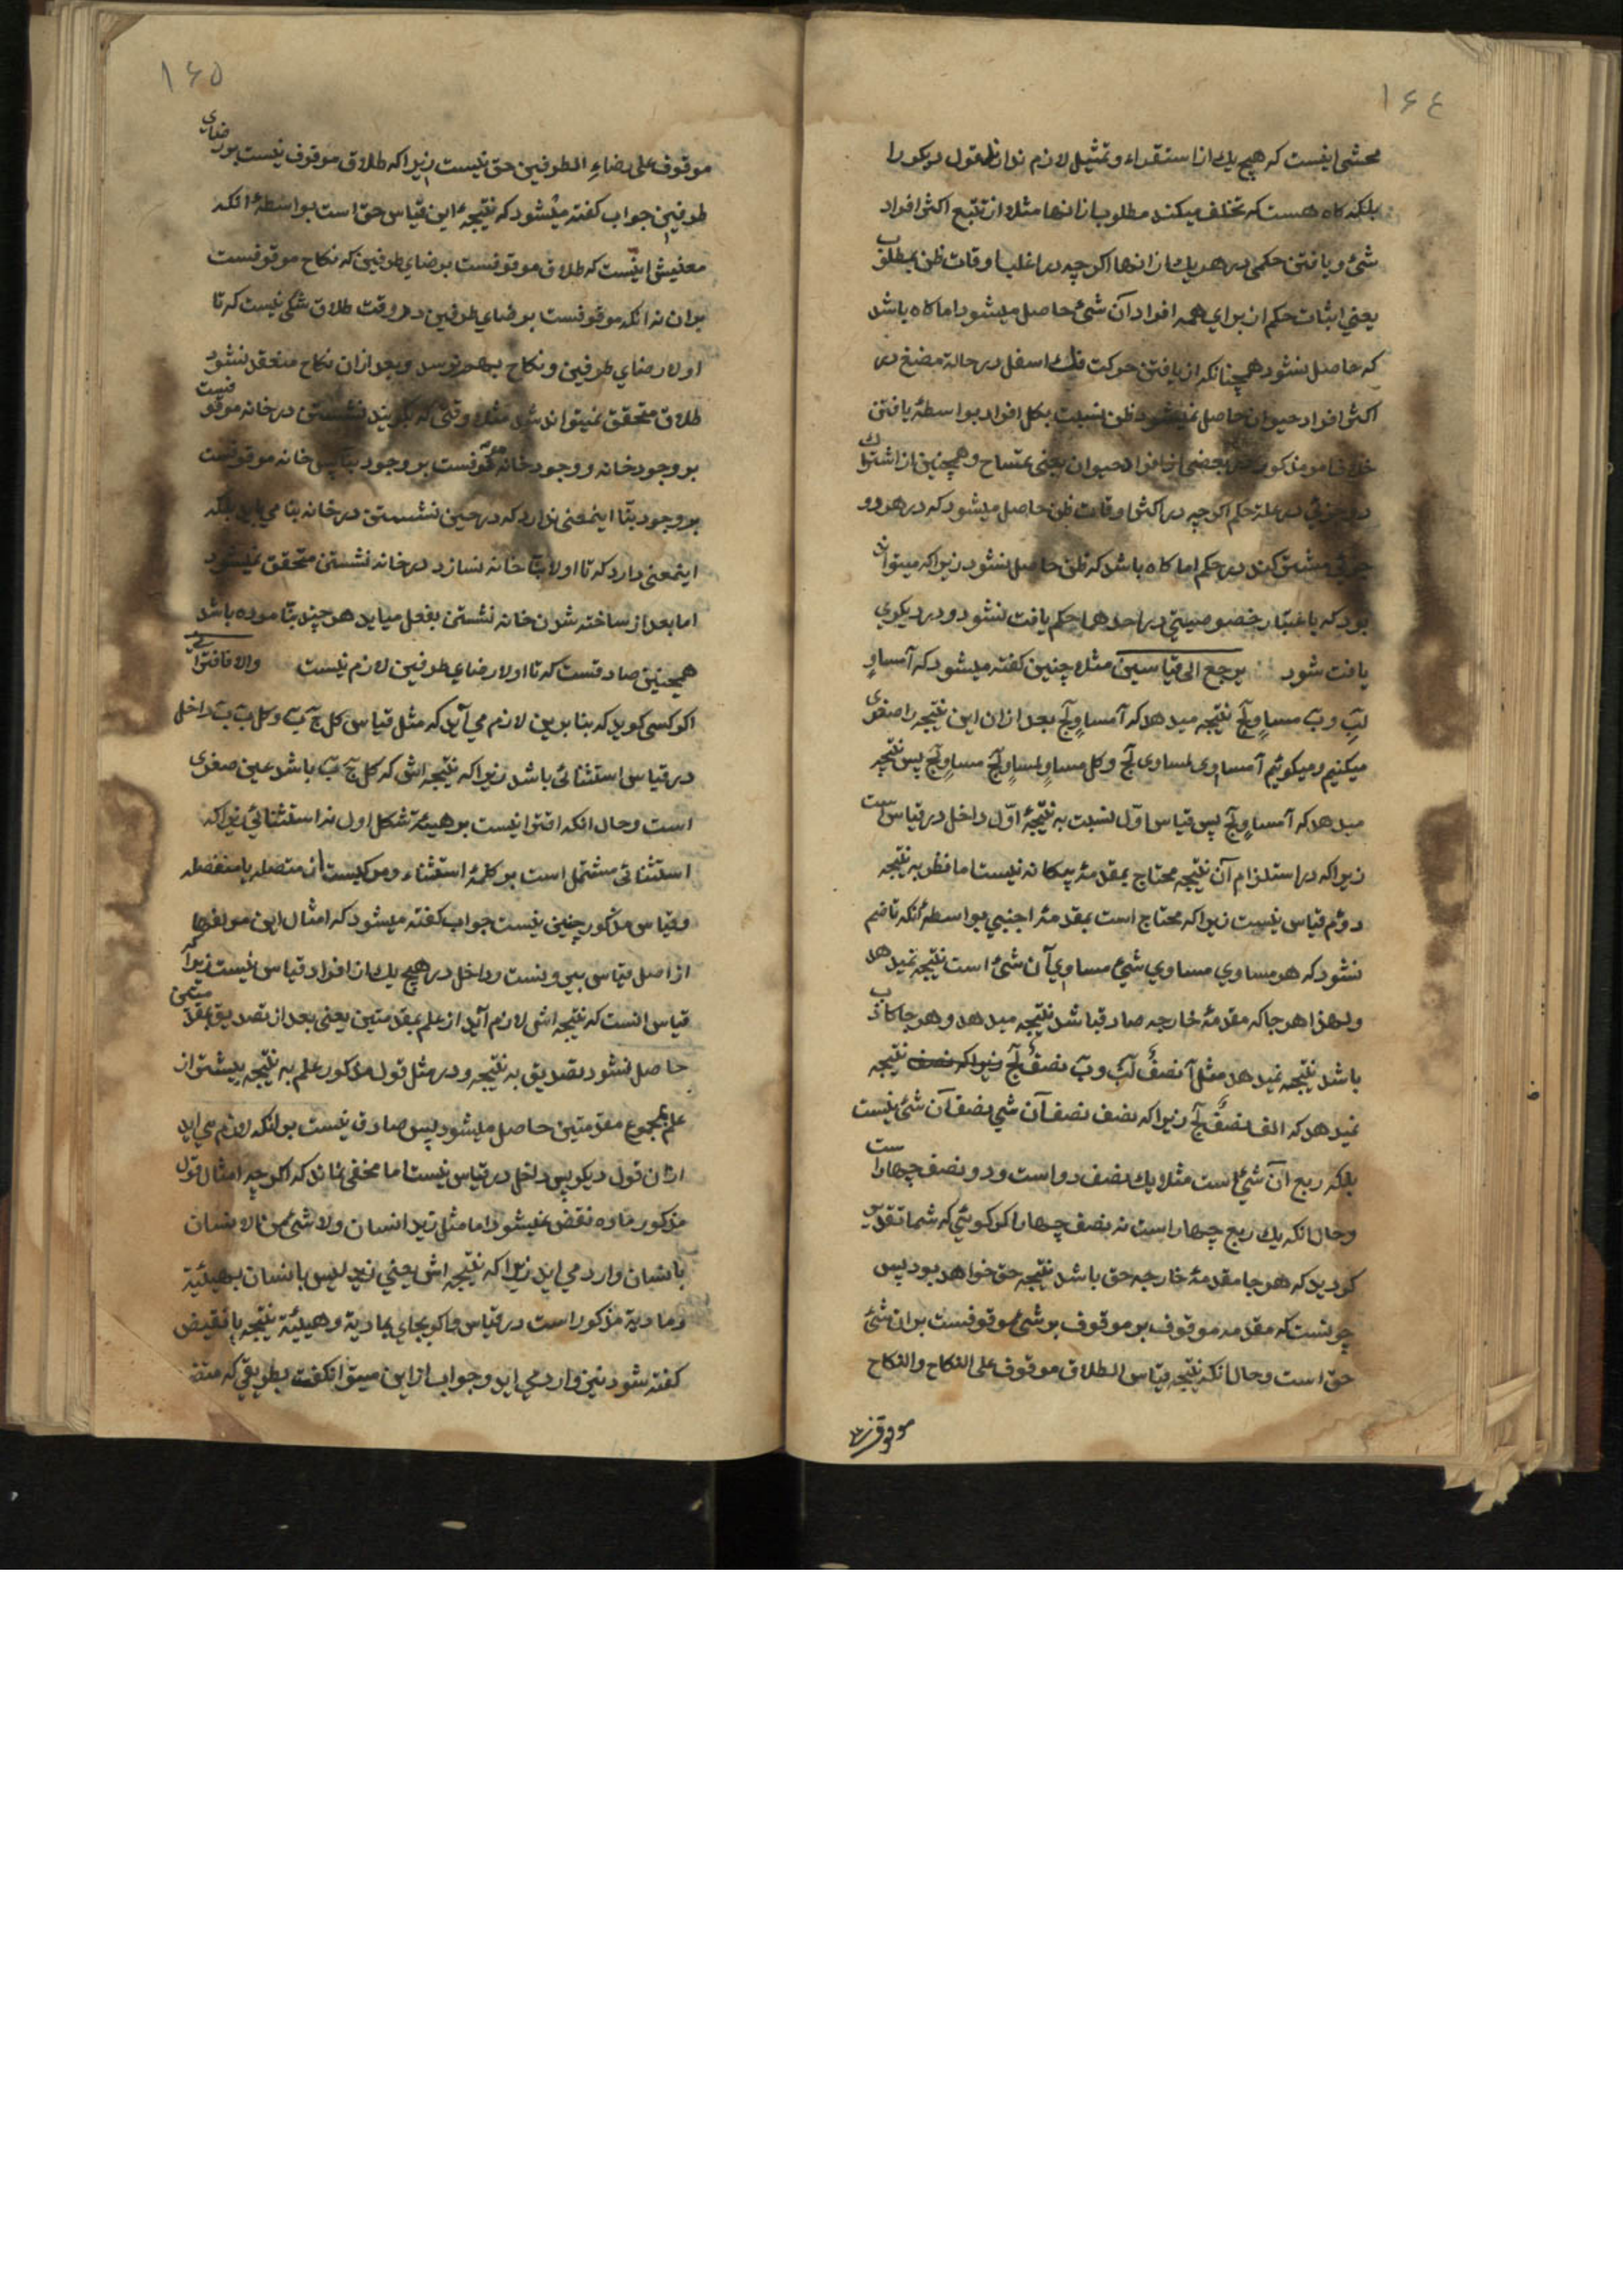 ۱۶۴
محشی اینست که هیچ یك از استقراء و تمثیل لازم ندارند قول دیکر را
بلکه کاه هست که تخلف میکند مطلوب از انها مثلا از تتبع اکثر افراد
شئ و یافتن حکمی در هر یك از انها اکرچه در اغلب اوقات ظن بمطلوب
یعنی اثبات حکم از برای همه افراد آن شئ حاصل میشود اما کاه باشد
که حاصل نشود همچنانکه از یافتن حرکت فك اسفل در حالة مضغ در
اکثر افراد حیوان حاصل نمیشود ظن نسبت بکل افراد بواسطۀ یافتن
خلاف امر مذکور در بعضی از افراد حیوان یعنی تمساح و همچنین از اشتراك
دو جزئی در علة حکم اکرچه در اکثر اوقات ظن حاصل میشود که در هر دو
جزئی مشترکند در حکم اما کاه باشد که ظن حاصل نشود زیرا که میتواند
بود که باعتبار خصوصیتی در احدهما حکم یافت نشود و در دیکری
یافت شود یرجع الی قیاسین مثلا چنین کفته میشود که آ مساوٍ
لبَ و بَ مساوٍ لجَ نتیجه میدهد که آ مساوٍ لجَ بعد از ان این نتیجه را صغری
میکنیم و میکوئیم آ مساوی لمساوی لجَ و کل مساوٍ لمساوٍ لجَ مساوٍ لجَ پس نتیجه
میدهد که آ مساوٍ لجَ پس قیاس اوّل نسبت به نتیجۀ اوّل داخل در قیاس است
زیرا که در استلزام آن نتیجه محتاج بمقدمۀ بیکانه نیست اما نظر به نتیجه
دوّم قیاس نیست زیرا که محتاج است بمقدمۀ اجنبی بواسطۀ انکه تا ضم
نشود که هر مساوی مساوی شئ مساوی آن شئ است نتیجه نمیدهد
و لهذا هر جا که مقدمۀ خارجه صادق باشد نتیجه میدهد و هر جا کاذب
باشد نتیجه نمیدهد مثل آ نصفٌ لبَ و بَ نصفٌ لجَ زیرا که نصف نتیجه
نمیدهد که الف نصفٌ لجَ زیرا که نصف نصف آن شی نصف آن شئ نیست
بلکه ربع آن شئ است مثلا یك نصف دو است و دو نصف چهار است
و حال انکه یك ربع چهار است نه نصف چهار اکر کوئی که شما تقدیر
کردید که هر جا مقدمۀ خارجه حق باشد نتیجه حق خواهد بود پس
چونست که مقدمه موقوف بر موقوف بر شئ موقوفست بران شئ
حق است و حال انکه نتیجه قیاس الطلاق موقوف علی النکاح و النکاح
موقوف
۱۶۵
موقوف علی رضاءِ الطرفین حق نیست زیرا که طلاق موقوف نیست بر رضای
طرفین جواب کفته میشود که نتیجه این قیاس حق است بواسطۀ انکه
معنیش اینست که طلاق موقوفست برضای طرفین که نکاح موقوفست
بران نه انکه موقوفست برضای طرفین در وقت طلاق شکی نیست که تا
اولا رضای طرفین و نکاح بهم نرسد و بعد از ان نکاح منعقد نشود
طلاق متحقق نمیتواند شد مثلا وقتی که کویند نشستن در خانه موقوفست
بر وجود خانه و وجود خانه موقوفست بر وجود بنّا پس خانه موقوفست
بر وجود بنّا اینمعنی ندارد که در حین نشستن در خانه بنّا می باید بلکه
اینمعنی دارد که تا اولا بنّا خانه نسازد در خانه نشستن متحقق نمیشود
اما بعد از ساخته شدن خانه نشستن بفعل میاید هر چند بنّا مرده باشد
همچنین صادقست که تا اولا رضای طرفین لازم نیست والا فاقترانی
اکر کسی کوید که بنا برین لازم می آید که مثل قیاس کل جَ بَ و کل بَ بَ داخل
در قیاس استثنائی باشد زیرا که نتیجه اش که کل جَ بَ باشد عین صغری
است و حال انکه اقترانیست بر هیئة شکل اول نه استثنائی زیرا که
استثنائی مشتمل است بر کلمۀ استثناء و مرکبست از متصله یا منفصله
و قیاس مذکور چنین نیست جواب کفته میشود که امثال این مولفها
از اصل قیاس بیرونست و داخل در هیچ یك از افراد قیاس نیست زیرا که
قیاس انست که نتیجه اش لازم آید از علم بمقدمتین یعنی بعد از تصدیق بمقدمتین
حاصل نشود تصدیق به نتیجه و در مثل قول مذکور علم به نتیجه پیشتر از
علم بمجموع مقدمتین حاصل میشود پس صادق نیست برانکه لازم می اید
از ان قول دیکر پس داخل در قیاس نیست اما مخفی نماند که اکرچه امثال قول
مذکور ماده نقض نمیشود اما مثل زید انسان و لا شئ من الانسان
بانسان وارد می اید زیرا که نتیجه اش یعنی زید لیس بانسان بهیئة
و مادة مذکور است در قیاس و اکر بجای بمادة و هیئة نتیجه یا نقیض
کفته شود نیز وارد می اید و جواب از این میتوان کفت بطریقی که متضـ